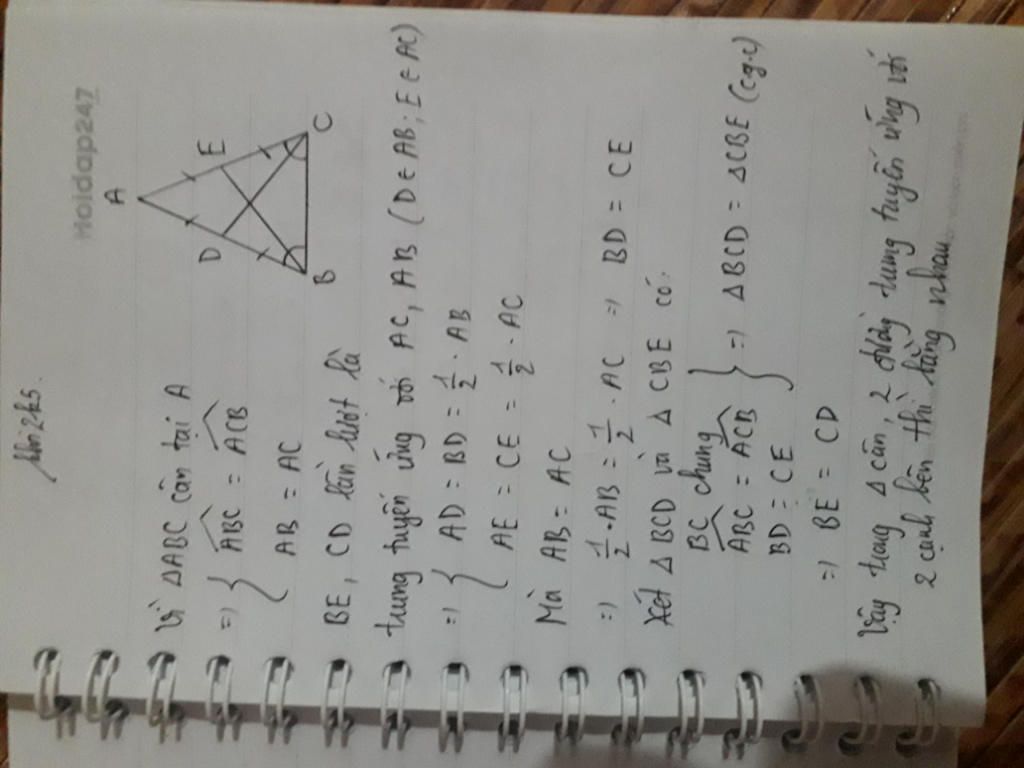 Hoidap247
A
D
E
B
C
Vì ΔABC cân tại A
=> { ABC = ACB
AB = AC
BE, CD lần lượt là
trung tuyến ứng với AC, AB (D ∈ AB; E ∈ AC)
=> { AD = BD = 1/2 . AB
AE = CE = 1/2 . AC
Mà AB = AC
=> 1/2 . AB = 1/2 . AC => BD = CE
Xét Δ BCD và Δ CBE có:
BC chung
ABC = ACB } => Δ BCD = Δ CBE (c.g.c)
BD = CE
=> BE = CD
Vậy trong Δ cân, 2 đường trung tuyến ứng với
2 cạnh bên thì bằng nhau